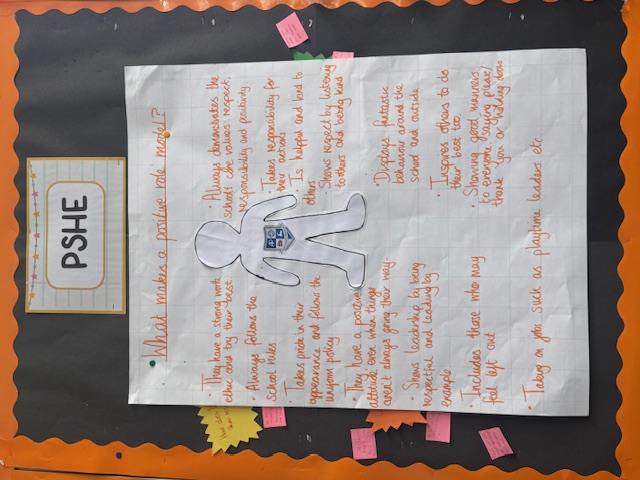 PSHE
What makes a positive role model?
• They have a strong work
ethic and try their best
• Always follows the
school rules
• Takes pride in their
appearance and follows the
uniform policy
They have a positive
attitude even when things
aren't always going their way.
• Shows leadership by being
respectful and leading by
example
• Includes those who may
feel left out
• Taking on jobs such as playtime leaders etc
• Always demonstrates the
school's core values respect,
responsibility and positivity.
• Takes responsibility for
their actions
• Is helpful and kind to
others
Shows respect by listening
to others and being kind
• Displays fantastic
behaviour around the
school and outside
• Inspires others to do
their best too.
• Showing good manners
to everyone (saying please/
thank you or holding doors